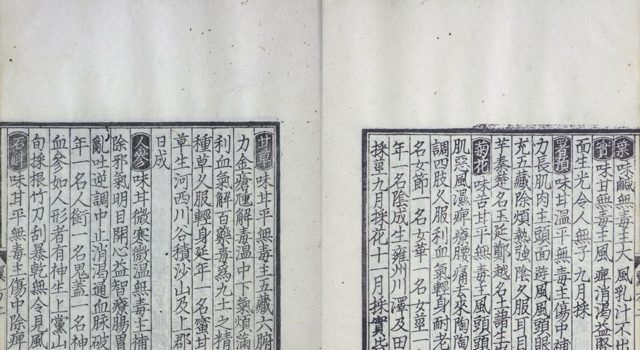 味鹹無毒主大風乳汁不出
實味甘無毒主風痺消渴益腎
面生光令人無子九月採
署預味甘溫平無毒主傷中補
力長肌肉主頭面遊風風頭
充五藏除煩熱強陰久服耳目
芋秦楚名王延鄭越名土藷生
菊花味苦甘平無毒主風頭頭
肌惡風濕痺療腰痛去來陶陶
調四肢久服利血氣輕身耐老
名女節一名女華一名女莖一
年一名陰成生雍州川澤及田
採莖九月採花十一月採實皆
甘草味甘平無毒主五藏六腑
力金瘡腫解毒溫中下氣煩滿
利血氣解百藥毒爲九土之精
種草久服輕身延年一名蜜甘
草生河西川谷積沙山及上郡
日成
人參味甘微寒微溫無毒主補
除邪氣明目開心益智療腸胃
亂吐逆調中止消渴通血脉破
年一名人銜一名鬼蓋一名神
血參如人形者有神生上黨山
旬採根竹刀刮暴乾無令見風
石斛味甘平無毒主傷中除痺